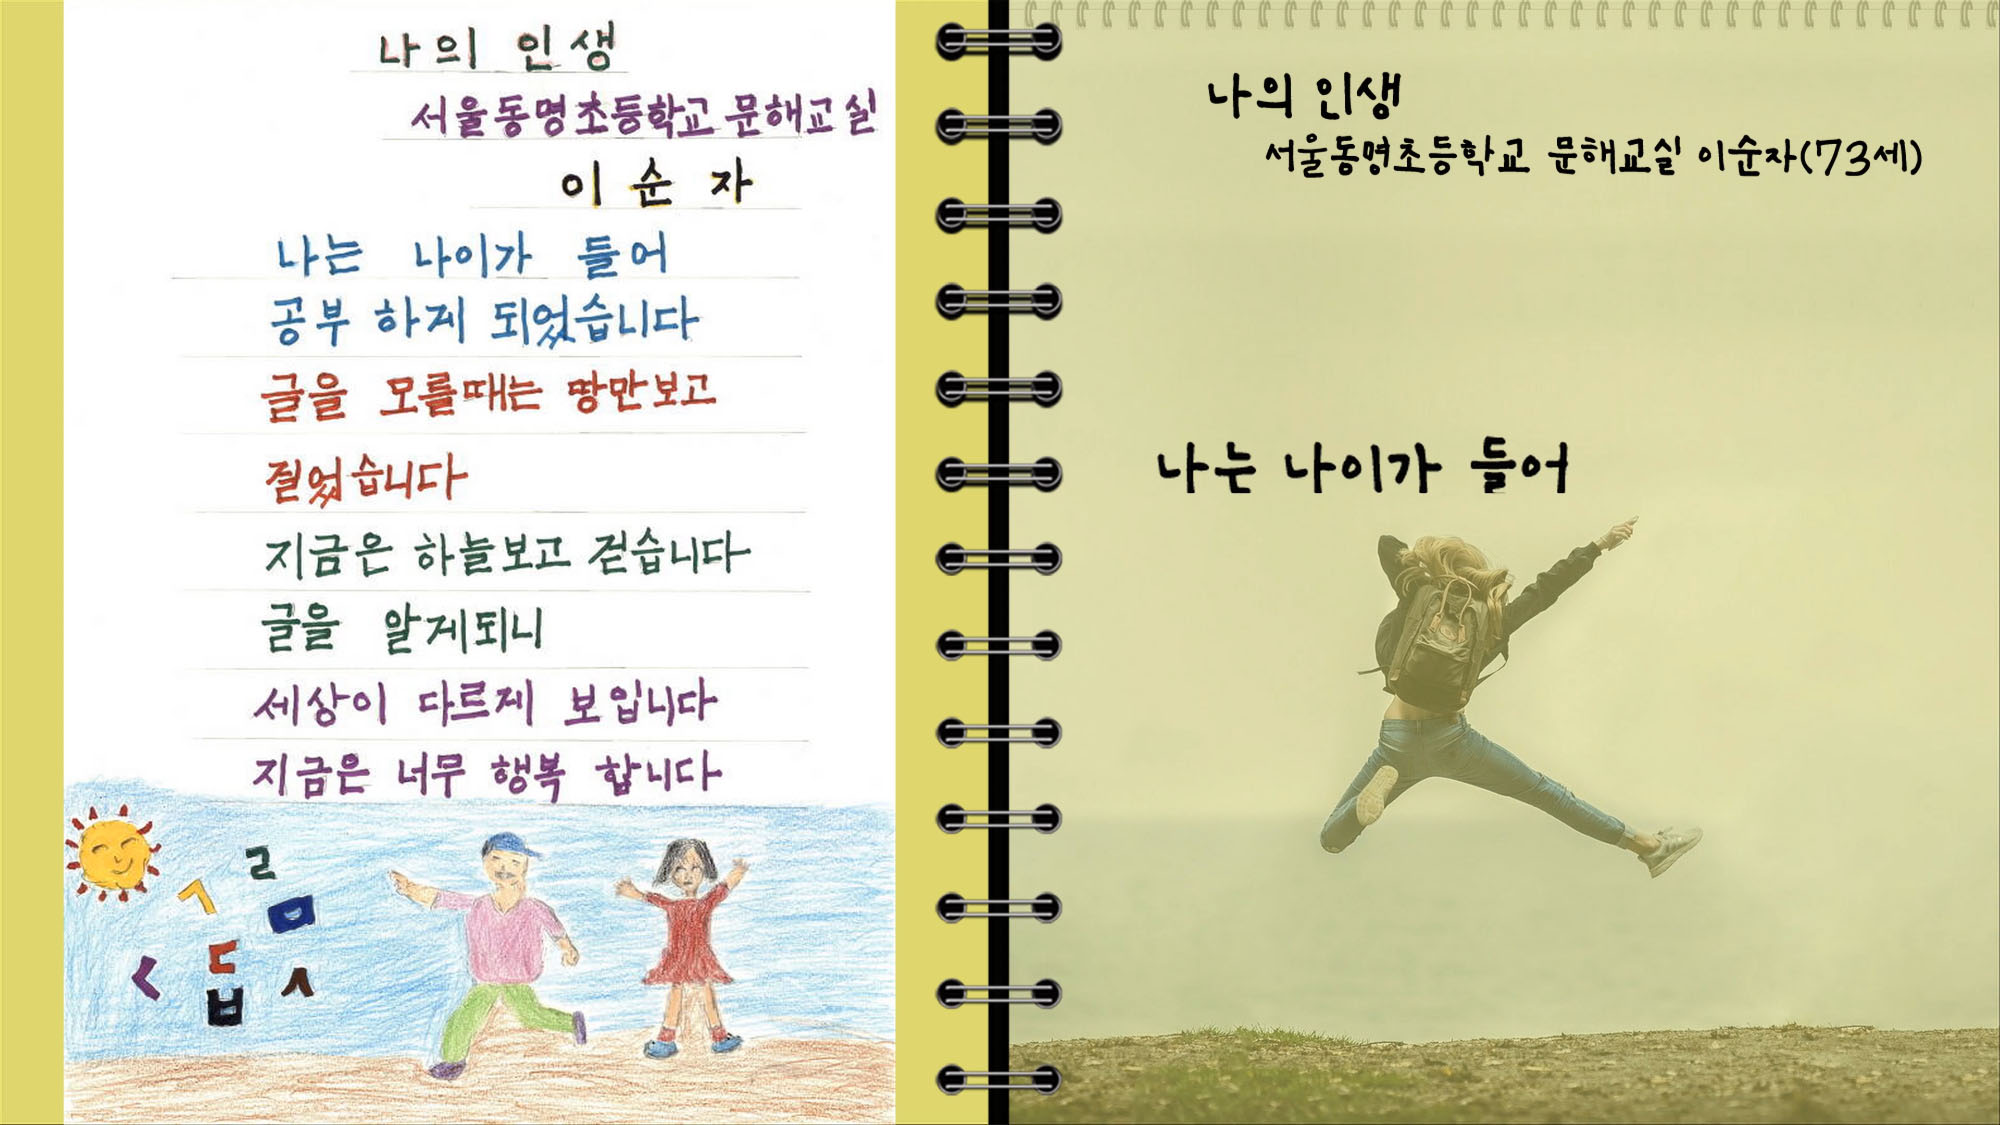 나의 인생
서울동명초등학교 문해교실
이순자
나는 나이가 들어
공부 하게 되었습니다
글을 모를때는 땅만보고
걷었습니다
지금은 하늘보고 걷습니다
글을 알게되니
세상이 다르게 보입니다
지금은 너무 행복 합니다
ㄱ
ㄹ
ㅁ
ㄷ
ㅂ
ㅅ
나의 인생
서울동명초등학교 문해교실 이순자(73세)
나는 나이가 들어